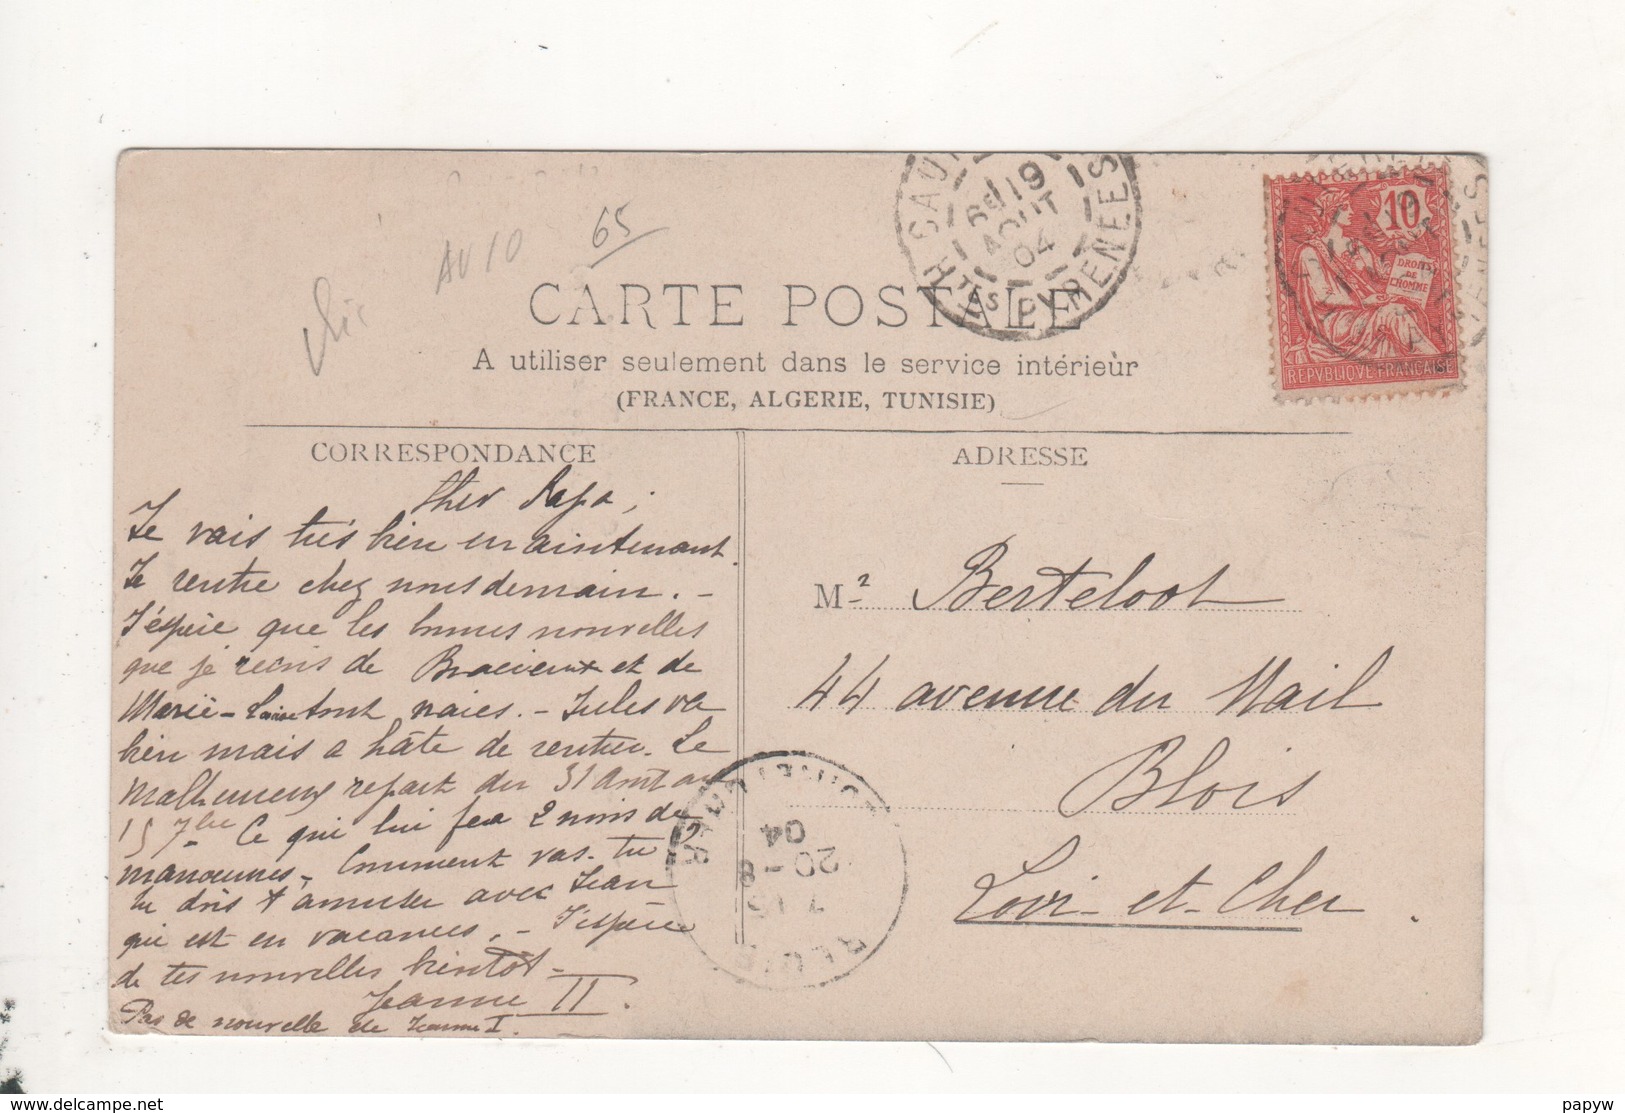 65
AV 10
SAU
6E 19
AOUT
04
HTES PYRENEES
10
DROITS
DE
L'HOMME
REPVBLIQVE FRANCAISE
CARTE POSTALE
A utiliser seulement dans le service intérieur
(FRANCE, ALGERIE, TUNISIE)
CORRESPONDANCE
Cher Papa,
Je vais très bien maintenant.
Je rentre chez nous demain. -
J'espère que les bonnes nouvelles
que je reçois de Bracieux et de
Marie-Louise sont vraies. - Jules va
bien mais a hâte de rentrer. Le
malheureux repart du 31 Août au
15 7bre Ce qui lui fera 2 mois de
manoeuvres. Comment vas-tu
tu dois t'amuser avec Jean
qui est en vacances. - J'espère
de tes nouvelles bientôt -
Jeanne II.
Pas de nouvelle de Jeanne I.
ADRESSE
Mr Berteloot
44 avenue du Mail
Blois
Loir-et-Cher.
20-8
04
papyw